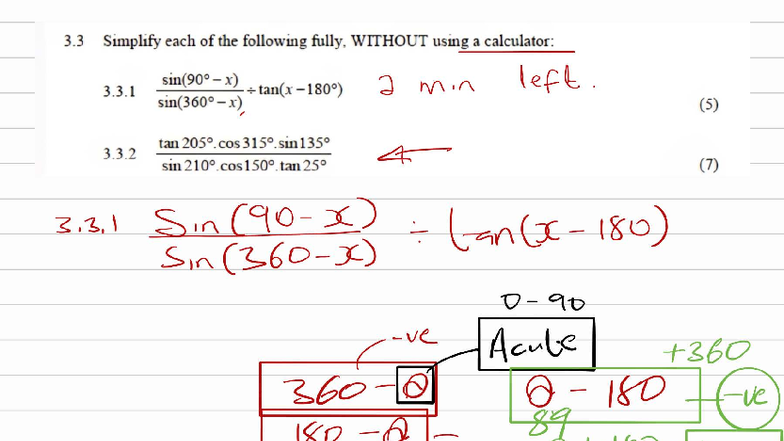 3.3 Simplify each of the following fully, WITHOUT using a calculator:
3.3.1 sin(90° – x) / sin(360° – x) ÷ tan(x – 180°) 2 min left. (5)
3.3.2 tan 205°. cos 315°. sin 135° / sin 210°. cos 150°. tan 25° (7)
3.3.1 Sin(90 - x) / Sin(360 - x) ÷ tan(x - 180)
0 - 90
-ve Acute +360
360 - θ θ - 180 -ve
89
180 - θ